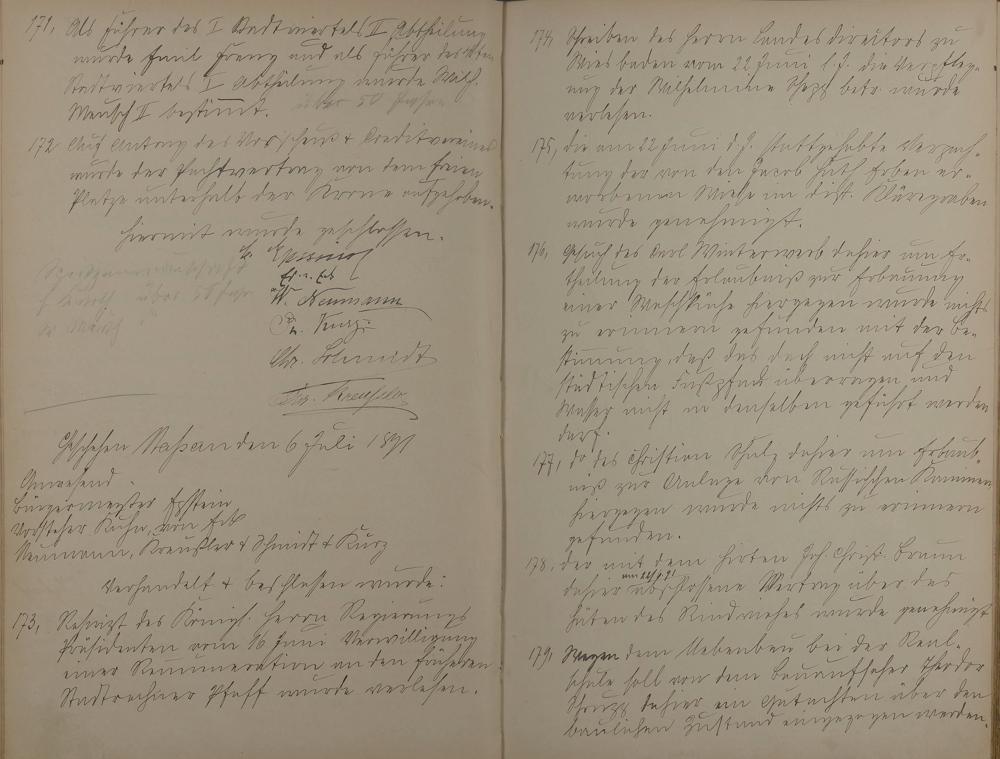 171, Als Führer des I Stadtviertels II Abtheilung
wurde Emil Franz und als Führer des
Stadtviertels I Abtheilung wurde Wilh.
Mensch II bestimmt.
172 Auf Antrag des Vorschuß & Creditvereines
wurde der Pachtvertrag von dem freien
Platze unterhalb der Krone aufgehoben.
Hiermit wurde geschlossen.
Epstein
W. Neumann
Kurz
Chr. Schmidt
Kreußler
über 50 Jahre
Geschehen Naßau den 6 Juli 1891
Anwesend
Bürgermeister Epstein
Vorsteher Kuhn, von Eck
Neumann, Kreußler & Schmidt & Kurz
Verhandelt & beschlossen wurde:
173, Rescript des Königl. Herrn Regierungs
Präsidenten vom 16 Juni Verwilligung
einer Remuneration an den früheren
Stadtrechner Pfaff wurde verlesen.
174, Schreiben des Herrn Landesdirectors zu
Wiesbaden vom 22 Juni l. J. die Verpfleg-
ung der Wilhelmine betr. wurde
verlesen.
175, die am 22 Juni d. J. stattgehabte Verpach-
tung der von den Jacob Huth Erben er-
worbenen Wiese im Distr.
wurde genehmigt.
176, Gesuch des Carl Winterwerb dahier um Er-
theilung der Erlaubniß zur Erbauung
einer Waschküche hiergegen wurde nichts
zu erinnern gefunden mit der Be-
stimmung, daß das Dach nicht auf den
städtischen Fußpfad überragen und
Wasser nicht in denselben geführt werden
darf.
177, do des Christian Schulz dahier um Erlaub-
niß zur Anlage von Russischen Kaminen
hiergegen wurde nichts zu erinnern
gefunden.
178, der mit dem Hirten Joh. Christ. Braun
dahier abgeschlossene Vertrag über das
Hüten des Rindviehes wurde genehmigt
179, Wegen dem Nebenbau bei der Real-
schule soll von dem Bauaufseher Theodor
dahier ein Gutachten über den
baulichen Zustand eingezogen werden.